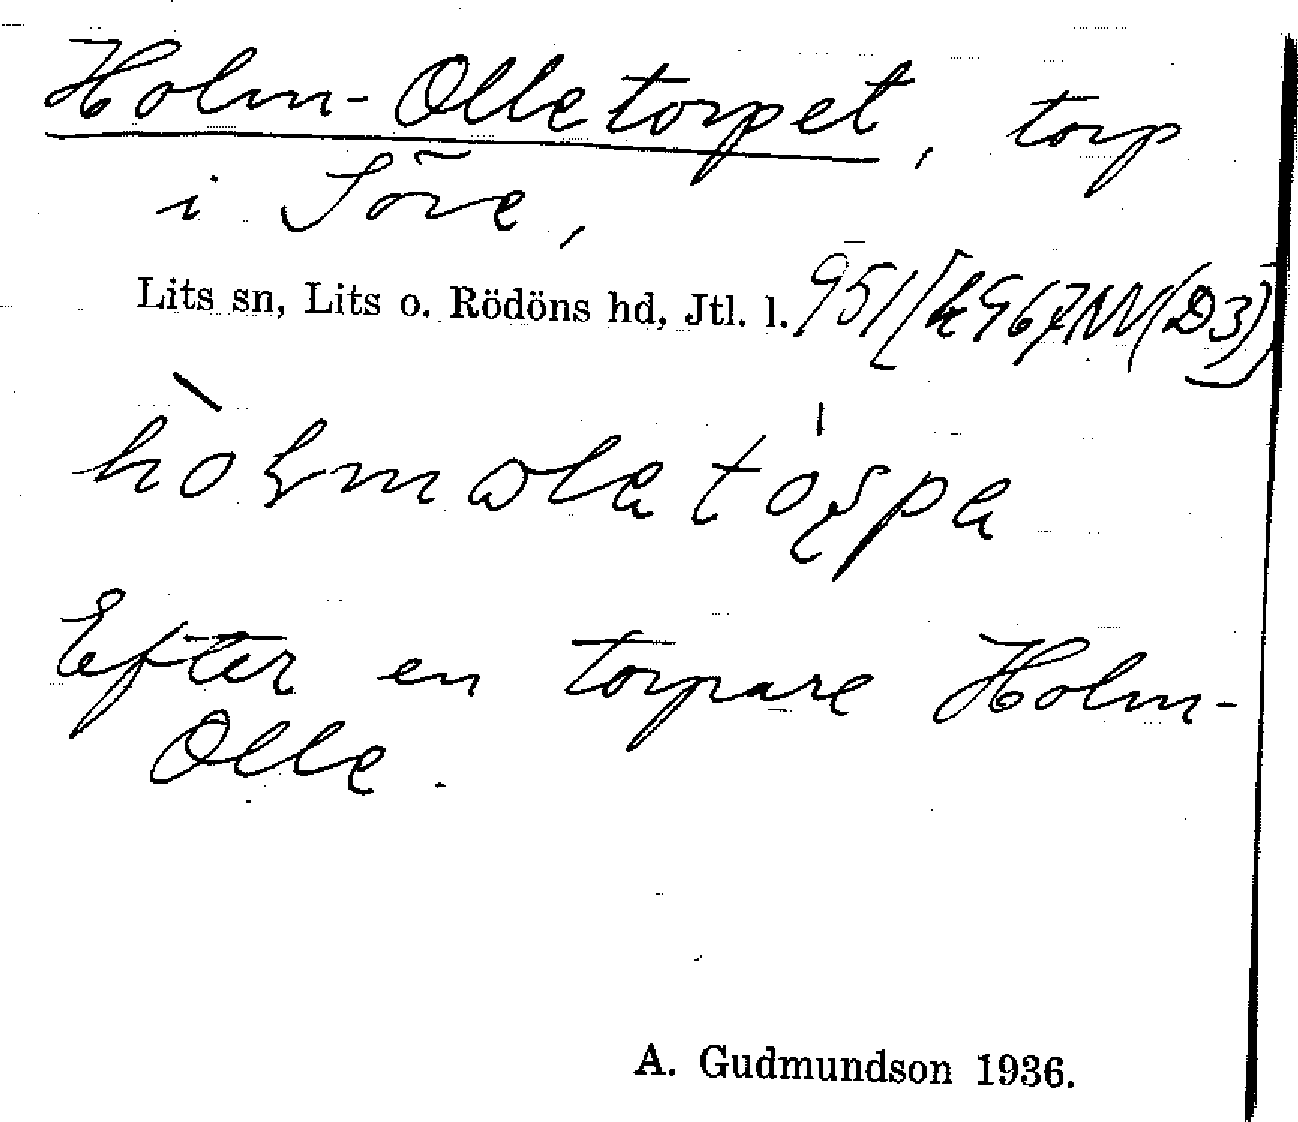 Holm-Olletorpet, torp
i Söre,
Lits sn, Lits o. Rödöns hd, Jtl. l. 951
Efter en torpare Holm-
Olle.
A. Gudmundson 1936.